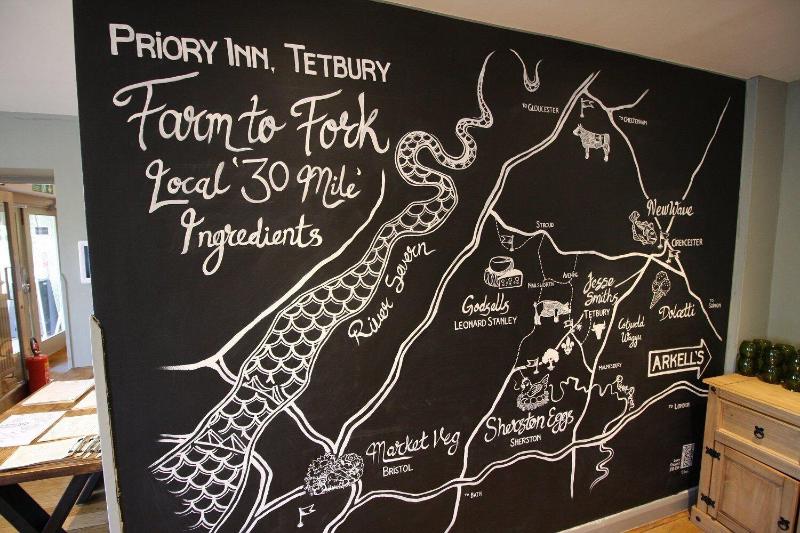 PRIORY INN, TETBURY
Farm to Fork
Local '30 Mile'
Ingredients
TO GLOUCESTER
TO CHELTENHAM
New Wave
CIRENCESTER
STROUD
River Severn
NAILSWORTH
AVENING
Godsells
LEONARD STANLEY
Jesse
Smiths
TETBURY
Dolcetti
TO SWINDON
Cotswold
Wagyu
ARKELL'S
MALMESBURY
TO LONDON
Market Veg
BRISTOL
Sherston Eggs
SHERSTON
TO BATH